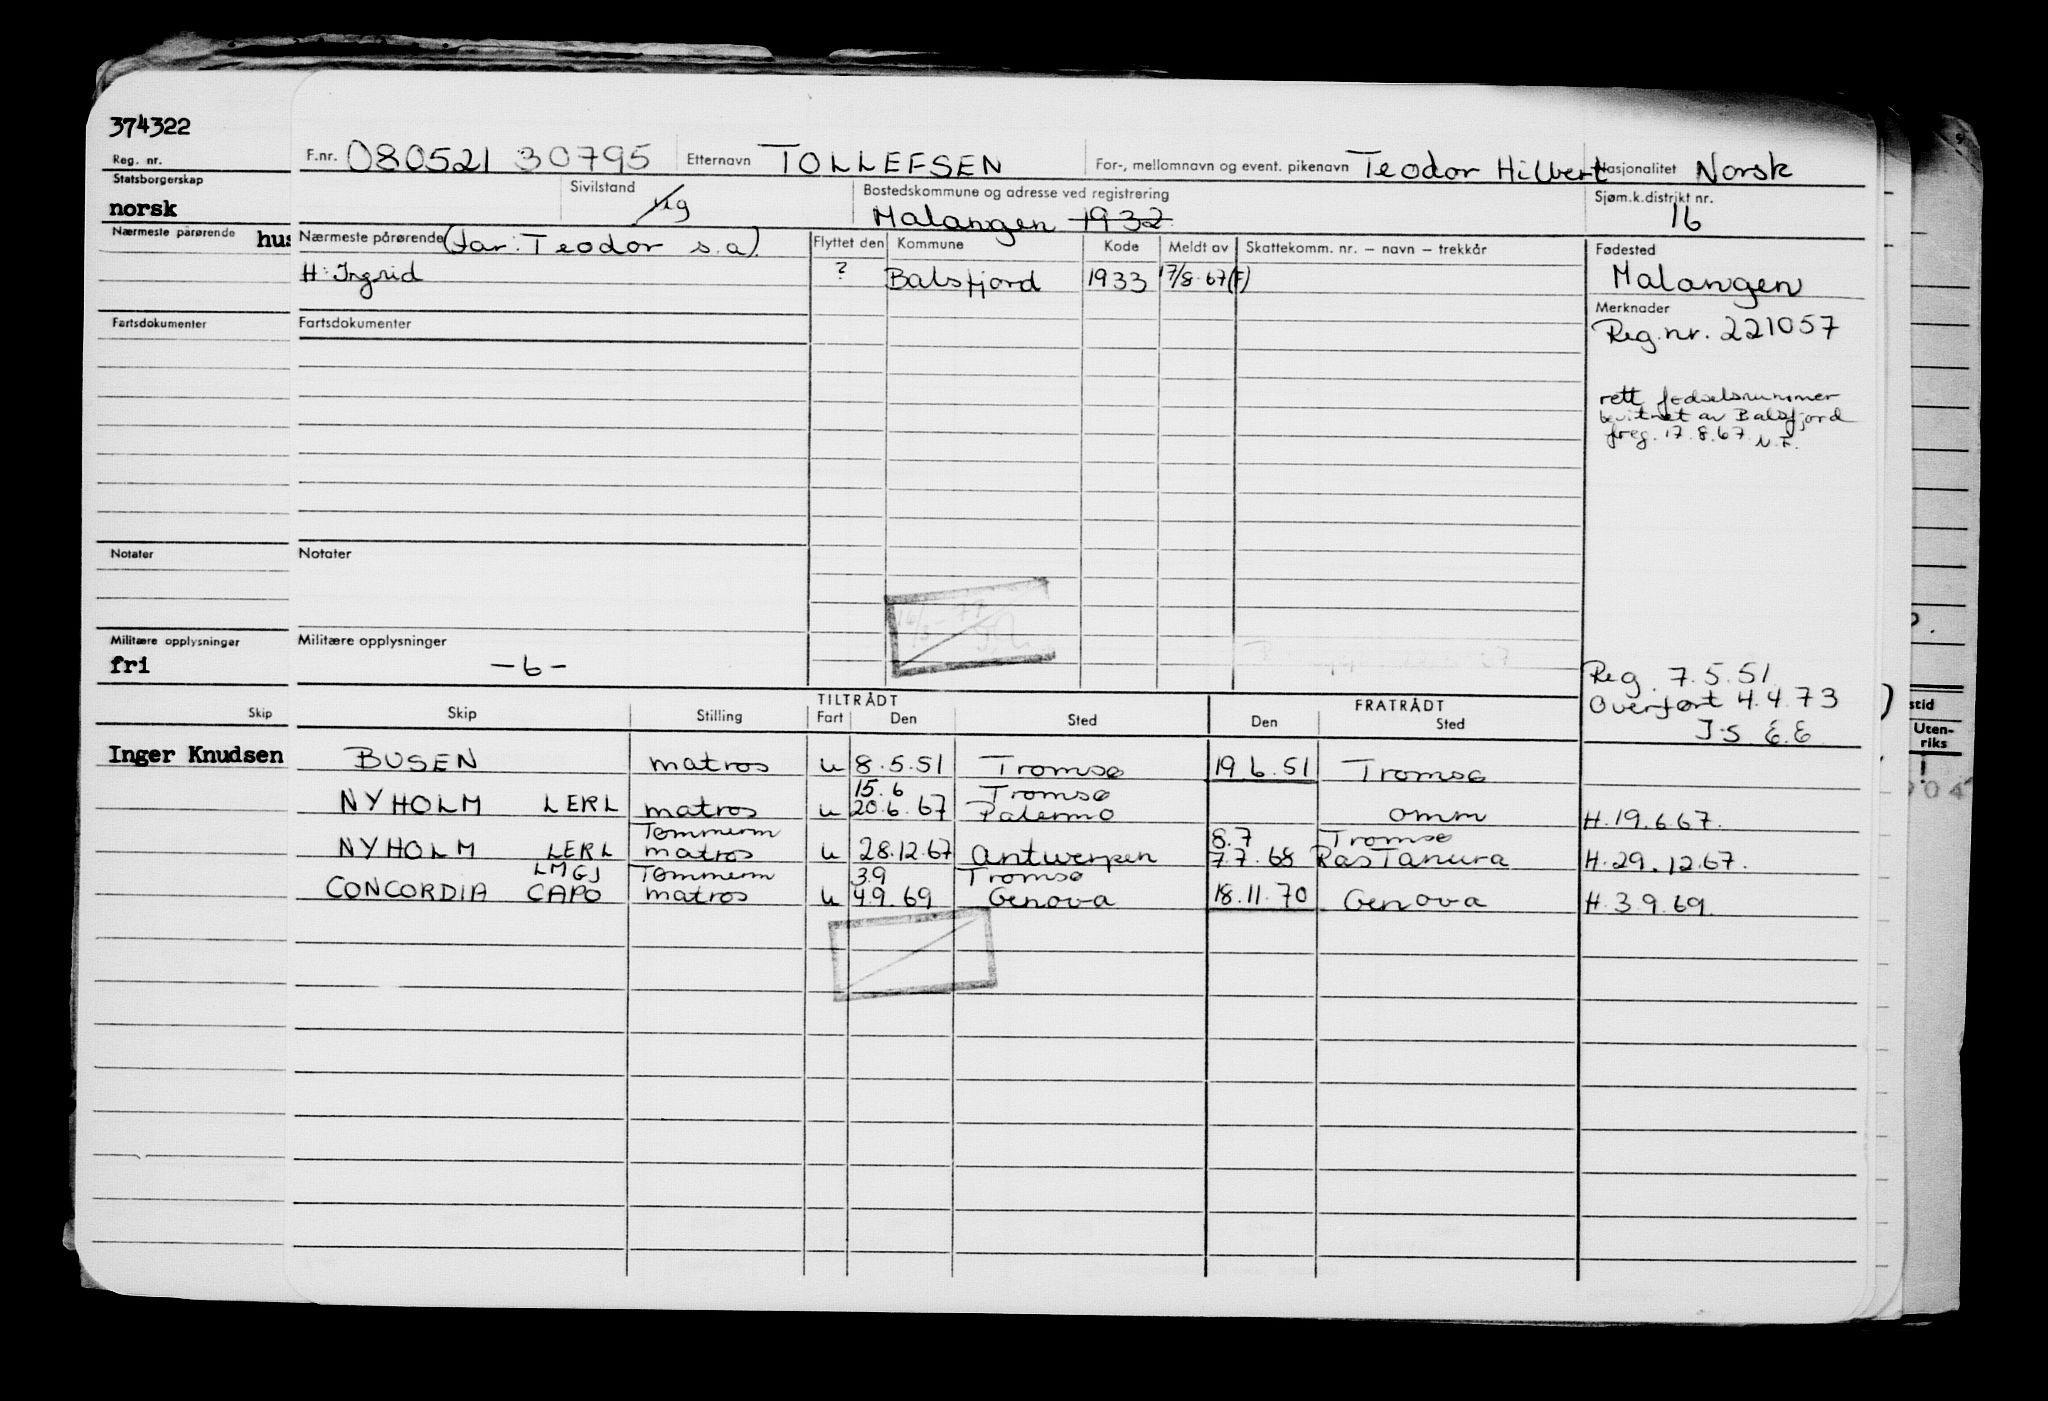 374322
Reg. nr.
Statsborgerskap
norsk
Nærmeste pårørende hus
Fartsdokumenter
Notater
Militære opplysninger
fri
Skip
Inger Knudsen
F.nr. 080521 30795 Etternavn TOLLEFSEN For-, mellomnavn og event. pikenavn Teodor Hilbert Nasjonalitet Norsk
Sivilstand ug Bostedskommune og adresse ved registrering Malangen 1932 Sjøm.k.distrikt nr. 16
Nærmeste pårørende (far: Teodor s.a.) Flyttet den Kommune Kode Meldt av Skattekomm. nr. – navn – trekkår Fødested
H: Ingrid ? Balsfjord 1933 17/8-67(F) Malangen
Merknader
Fartsdokumenter Reg.nr. 221057
rett fødselsnummer
bevitnet av Balsfjord
freg. 17.8.67. N.F.
Notater
Militære opplysninger
-6-
Reg. 7.5.51
Overført 4.4.73
J.S E.E
TILTRÅDT FRATRÅDT
Skip Stilling Fart Den Sted Den Sted
BUSEN matros u 8.5.51 Tromsø 19.6.51 Tromsø
15.6 Tromsø
NYHOLM LERL matros u 20.6.67 Palermo omm H.19.6.67.
Tømmerm 8.7 Tromsø
NYHOLM LERL matros u 28.12.67 Antwerpen 7.7.68 Ras Tanura H.29.12.67.
LMGJ Tømmerm 3.9 Tromsø
CONCORDIA CAPO matros u 4.9.69 Genova 18.11.70 Genova H.3.9.69.
stid
Uten-
riks